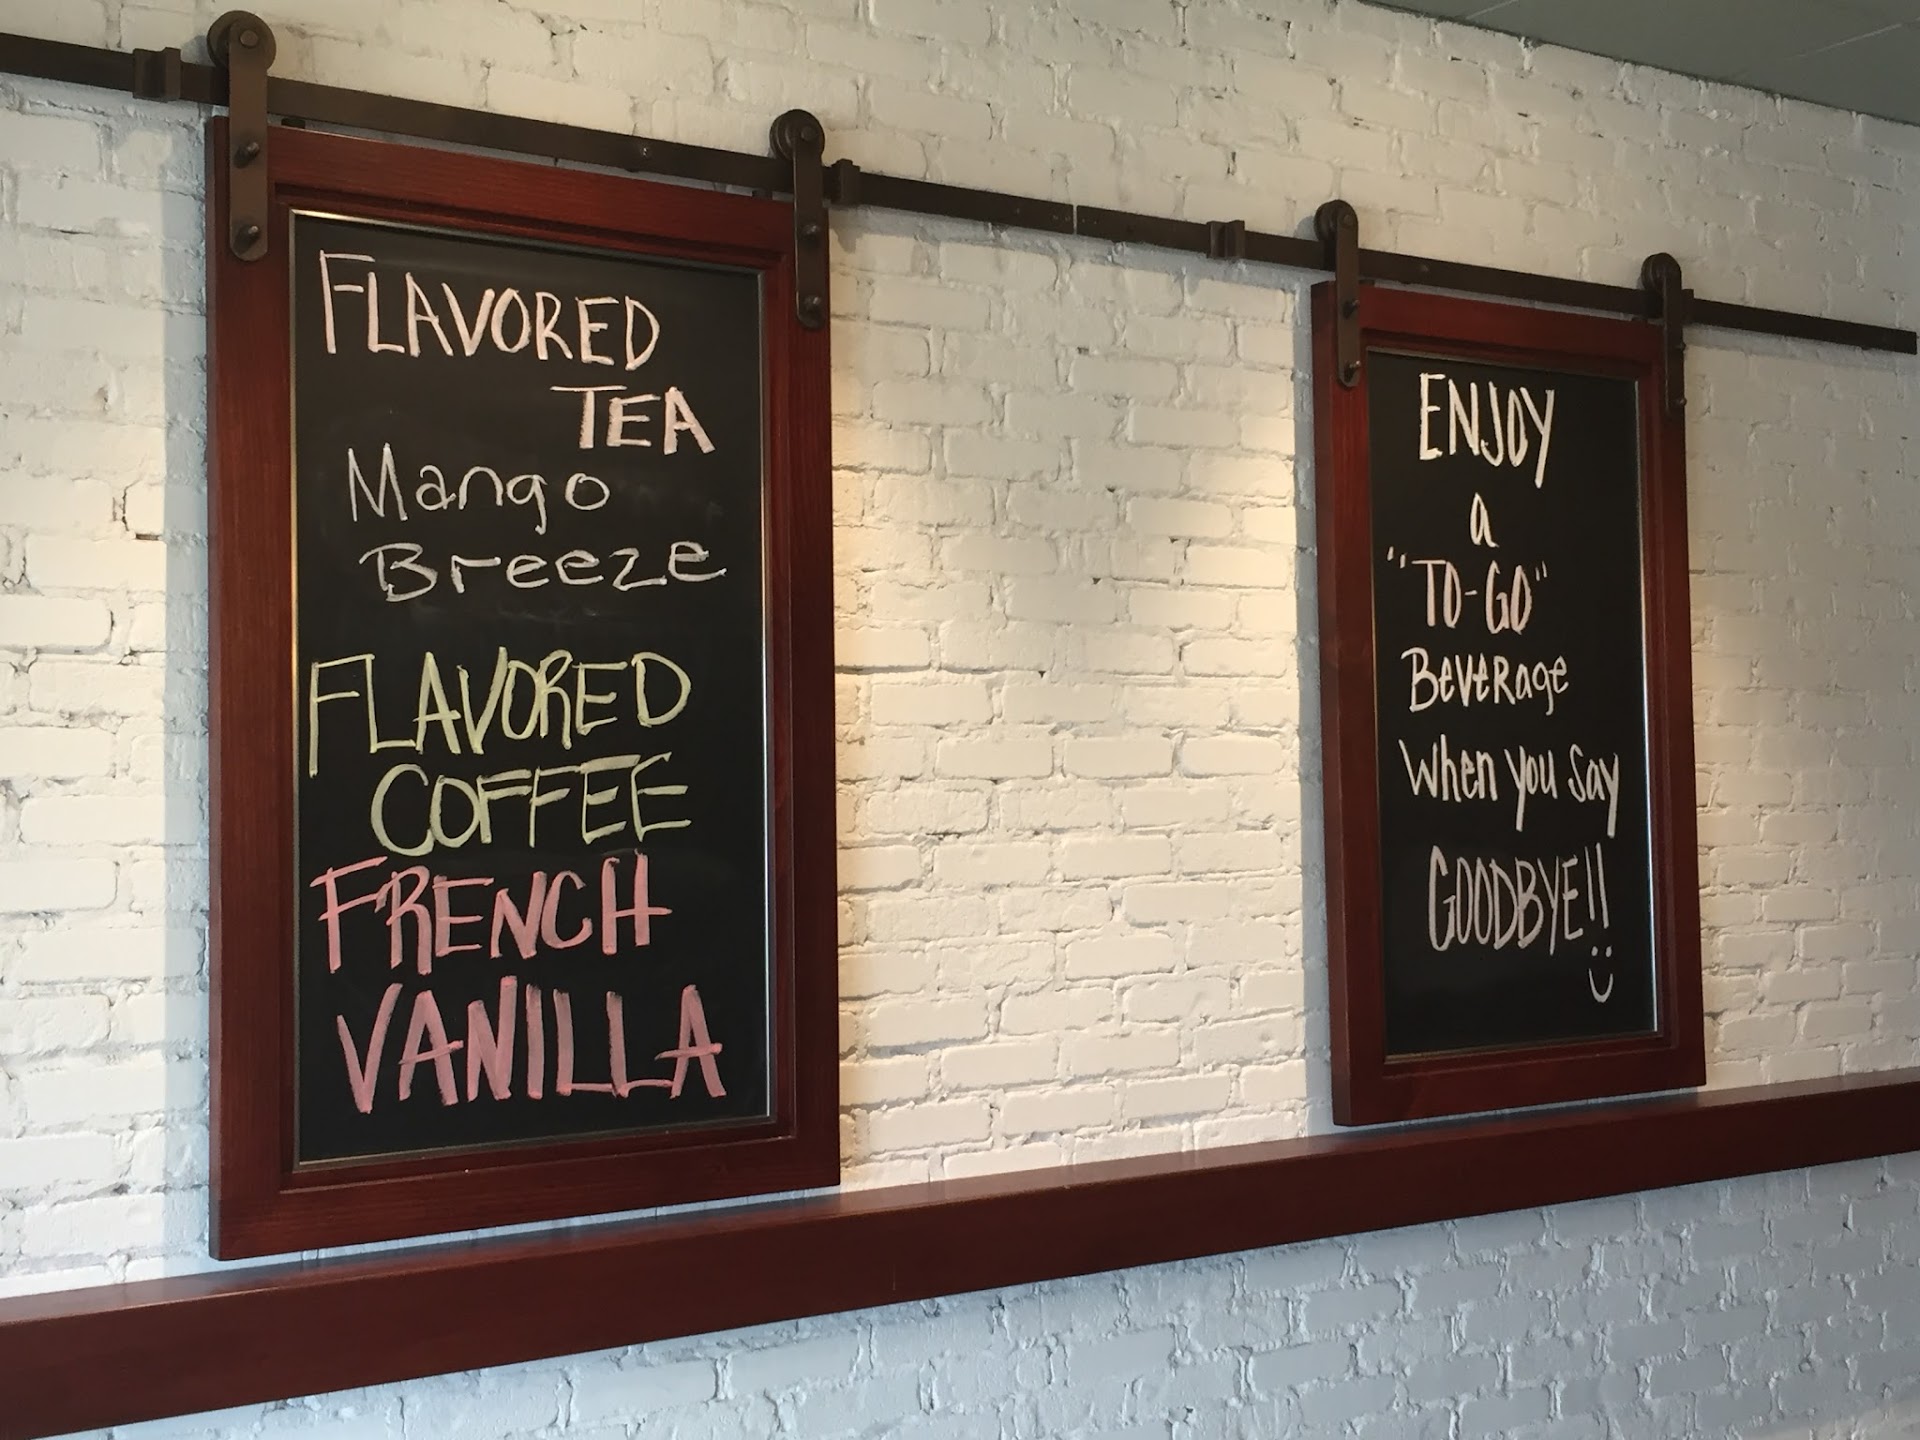 FLAVORED
TEA
Mango
Breeze
FLAVORED
COFFEE
FRENCH
VANILLA
ENJOY
a
"TO-GO"
Beverage
When you Say
GOODBYE!!